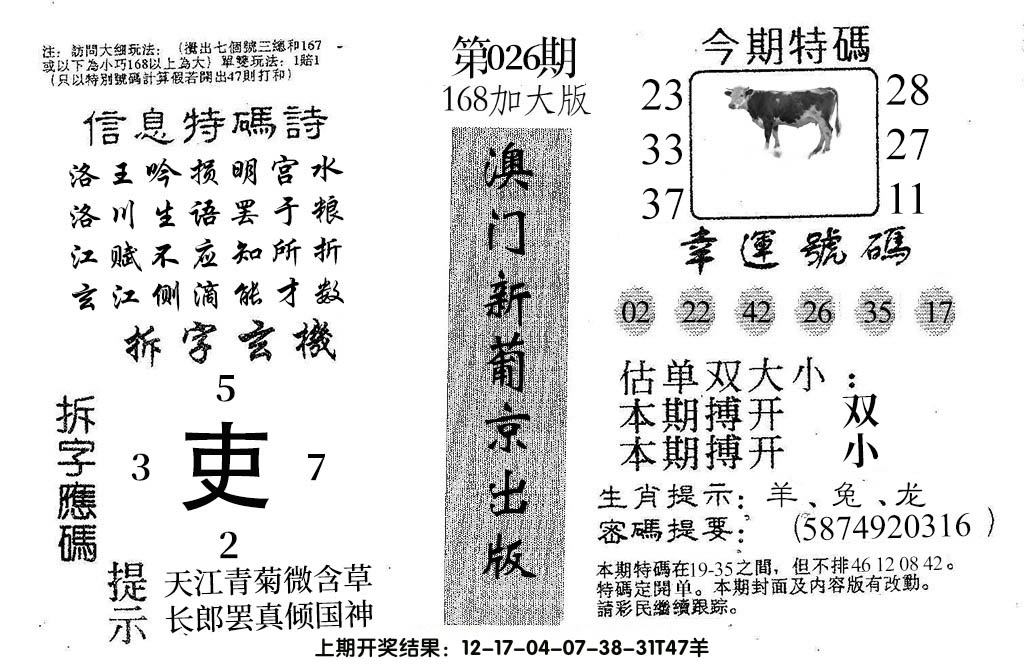 注：訪問大細玩法：（攪出七個號三總和167
或以下為小巧168以上為大）單雙玩法：1賠1
（只以特別號碼計算假若開出47則打和）
信息特碼詩
洛王吟损明宫水
洛川生语罢于粮
江赋不应知所折
玄江侧滴能才数
拆字玄機
拆字應碼
5
3 吏 7
2
提示
天江青菊微含草
长郎罢真倾国神
第026期
168加大版
澳门新葡京出版
今期特碼
23 28
33 27
37 11
幸運號碼
02 22 42 26 35 17
估单双大小：
本期搏开 双
本期搏开 小
生肖提示：羊、兔、龙
密碼提要：（5874920316）
本期特碼在19-35之間，但不排46 12 08 42。
特碼定開单。本期封面及内容版有改動。
請彩民繼續跟踪。
上期开奖结果：12-17-04-07-38-31T47羊